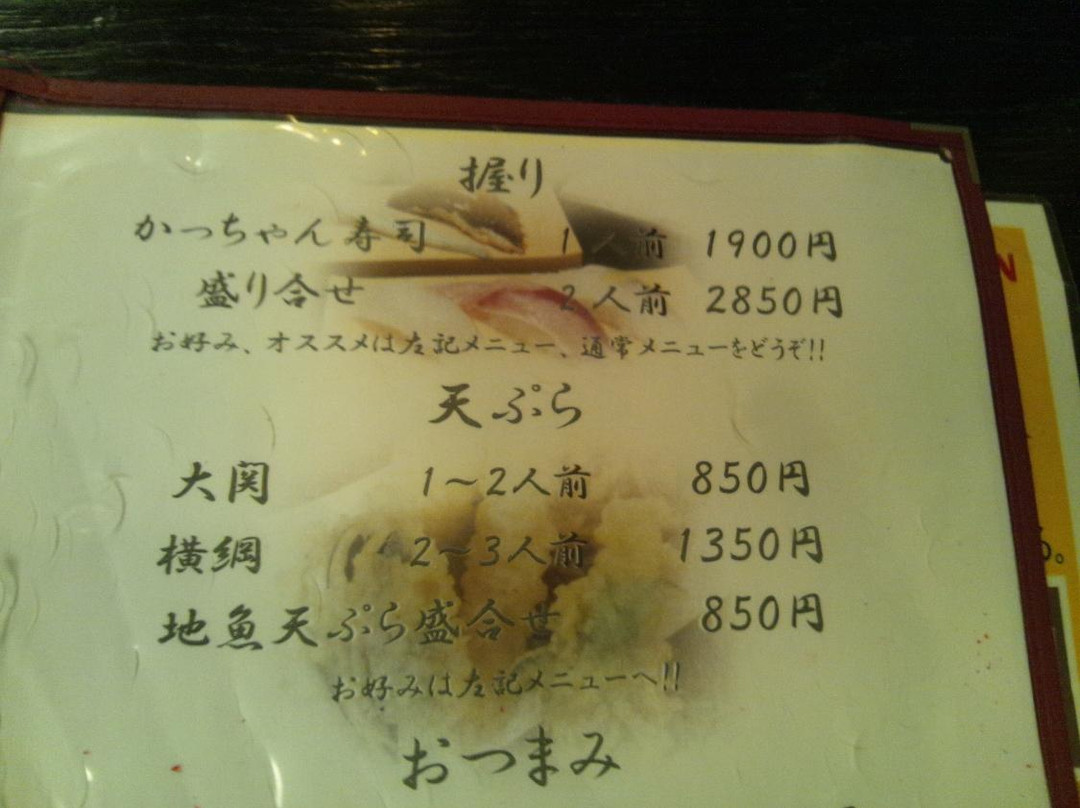 握り
かっちゃん寿司 1人前 1900円
盛り合せ 2人前 2850円
お好み、オススメは左記メニュー、通常メニューをどうぞ!!
天ぷら
大関 1～2人前 850円
横綱 2～3人前 1350円
地魚天ぷら盛合せ 850円
お好みは左記メニューへ!!
おつまみ
N
る。